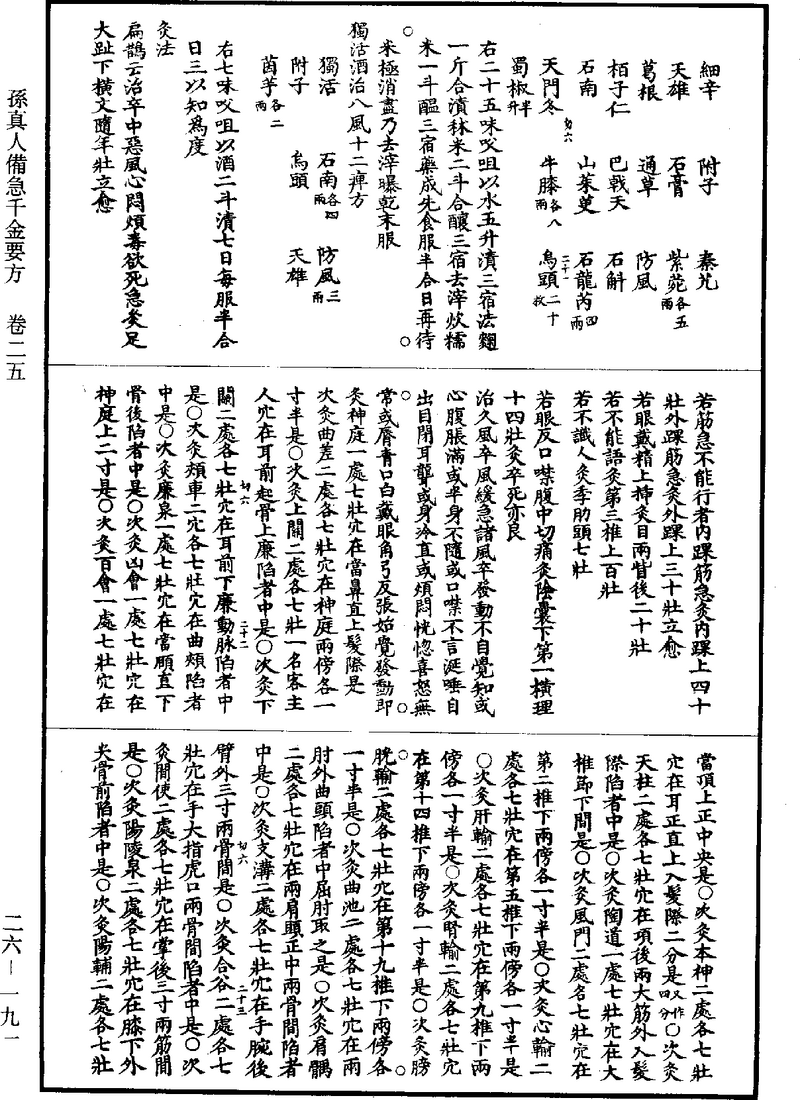 孫真人備急千金要方　卷二五
二六—一九一
細辛　附子　秦艽
天雄　石膏　紫菀各五兩
葛根　通草　防風
栢子仁　巴戟天　石斛
石南　山茱萸　石龍芮四兩
天門冬　牛膝各八兩　烏頭二十枚
蜀椒半升
右二十五味㕮咀以水五升漬三宿法麴
一斤合漬秫米二斗合釀三宿去滓炊糯
米一斗醖三宿藥成先食服半合日再待
米極消盡乃去滓曝乾末服
獨活酒治八風十二痺方
獨活　石南各四兩　防風三兩
附子　烏頭　天雄
茵芋各二兩
右七味㕮咀以酒二斗漬七日每服半合
日三以知為度
灸法
扁鵲云治卒中惡風心悶煩毒欲死急灸足
大趾下橫文隨年壯立愈
若筋急不能行者內踝筋急灸內踝上四十
壯外踝筋急灸外踝上三十壯立愈
若眼戴精上揷灸目兩眥後二十壯
若不能語灸第三椎上百壯
若不識人灸季肋頭七壯
若眼反口噤腹中切痛灸陰囊下第一橫理
十四壯灸卒死亦良
治久風卒風緩急諸風卒發動不自覺知或
心腹脹滿或半身不隨或口噤不言涎唾自
出目閉耳聾或身冷直或煩悶恍惚喜怒無
常或脣青口白戴眼角弓反張始覺發動即
灸神庭一處七壯穴在當鼻直上髮際是
次灸曲差二處各七壯穴在神庭兩傍各一
寸半是○次灸上關二處各七壯一名客主
人穴在耳前起骨上廉陷者中是○次灸下
關二處各七壯穴在耳前下廉動脉陷者中
是○次灸頰車二穴各七壯穴在曲頰陷者
中是○次灸廉泉一處七壯穴在當頤直下
骨後陷者中是○次灸囟會一處七壯穴在
神庭上二寸是○次灸百會一處七壯穴在
當頂上正中央是○次灸本神二處各七壯
穴在耳正直上入髮際二分是又作四分○次灸
天柱二處各七壯穴在項後兩大筋外入髮
際陷者中是○次灸陶道一處七壯穴在大
椎節下間是○次灸風門二處各七壯穴在
第二椎下兩傍各一寸半是○次灸心輸二
處各七壯穴在第五椎下兩傍各一寸半是
○次灸肝輸二處各七壯穴在第九椎下兩
傍各一寸半是○次灸腎輸二處各七壯穴
在第十四椎下兩傍各一寸半是○次灸膀
胱輸二處各七壯穴在第十九椎下兩傍各
一寸半是○次灸曲池二處各七壯穴在兩
肘外曲頭陷者中屈肘取之是○次灸肩髃
二處各七壯穴在兩肩頭正中兩骨間陷者
中是○次灸支溝二處各七壯穴在手腕後
臂外三寸兩骨間是○次灸合谷二處各七
壯穴在手大指虎口兩骨間陷者中是○次
灸間使二處各七壯穴在掌後三寸兩筋間
是○次灸陽陵泉二處各七壯穴在膝下外
尖骨前陷者中是○次灸陽輔二處各七壯